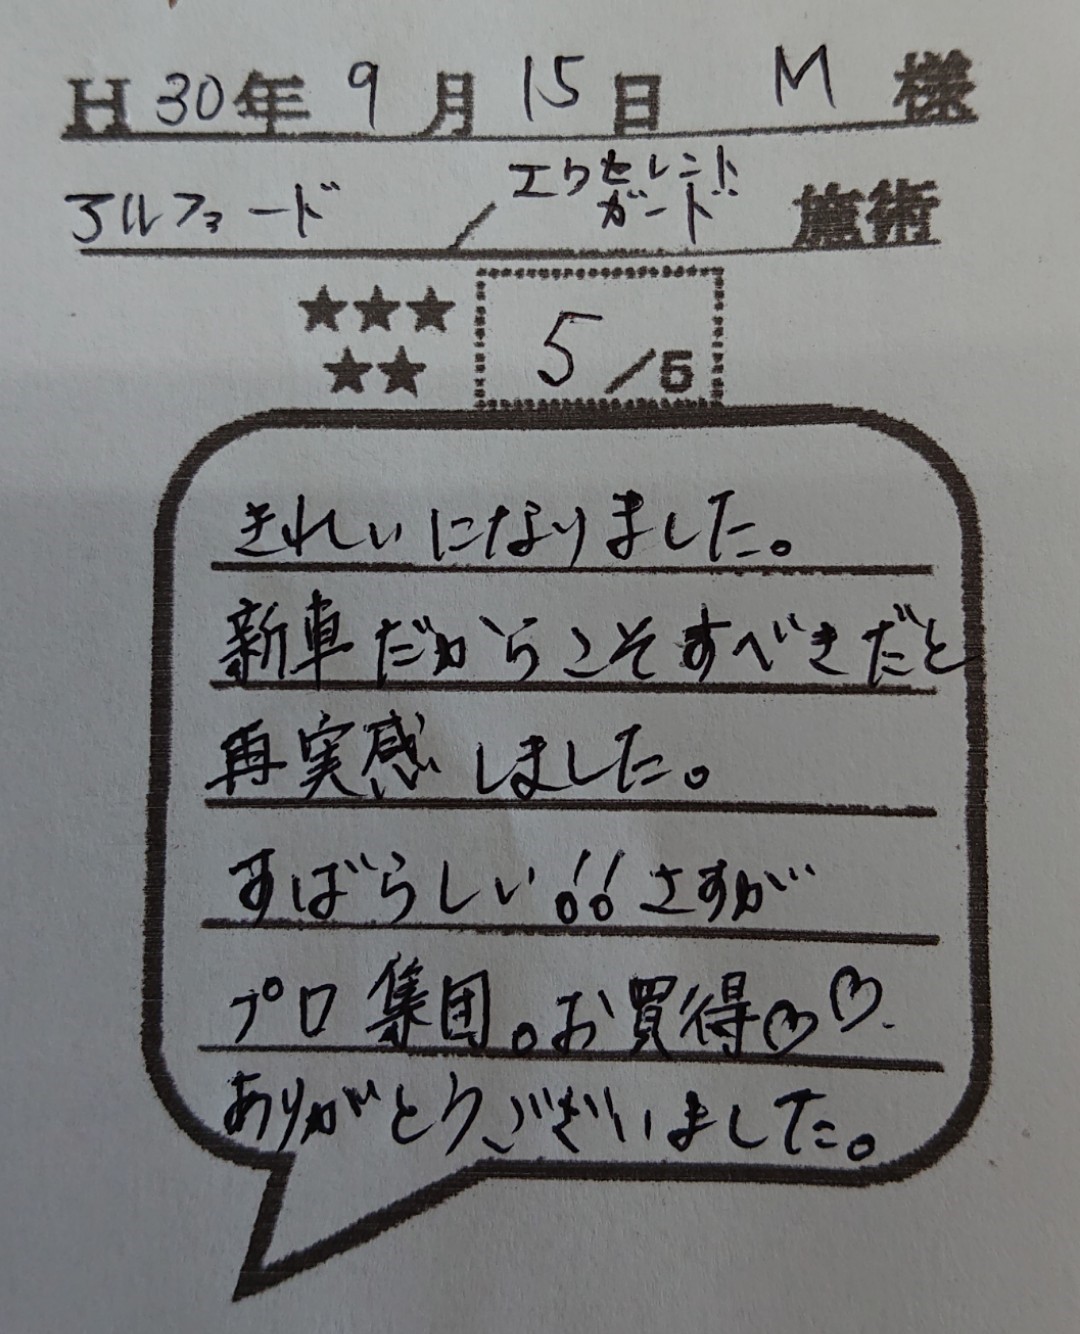 H 30年 9月 15日 M 様
アルファード / エクセレント
ガード 施術
★★★
★★
5/5
きれいになりました。
新車だからこそすべきだと
再実感しました。
すばらしい!!さすが
プロ集団。お買得♡♡.
ありがとうございました。